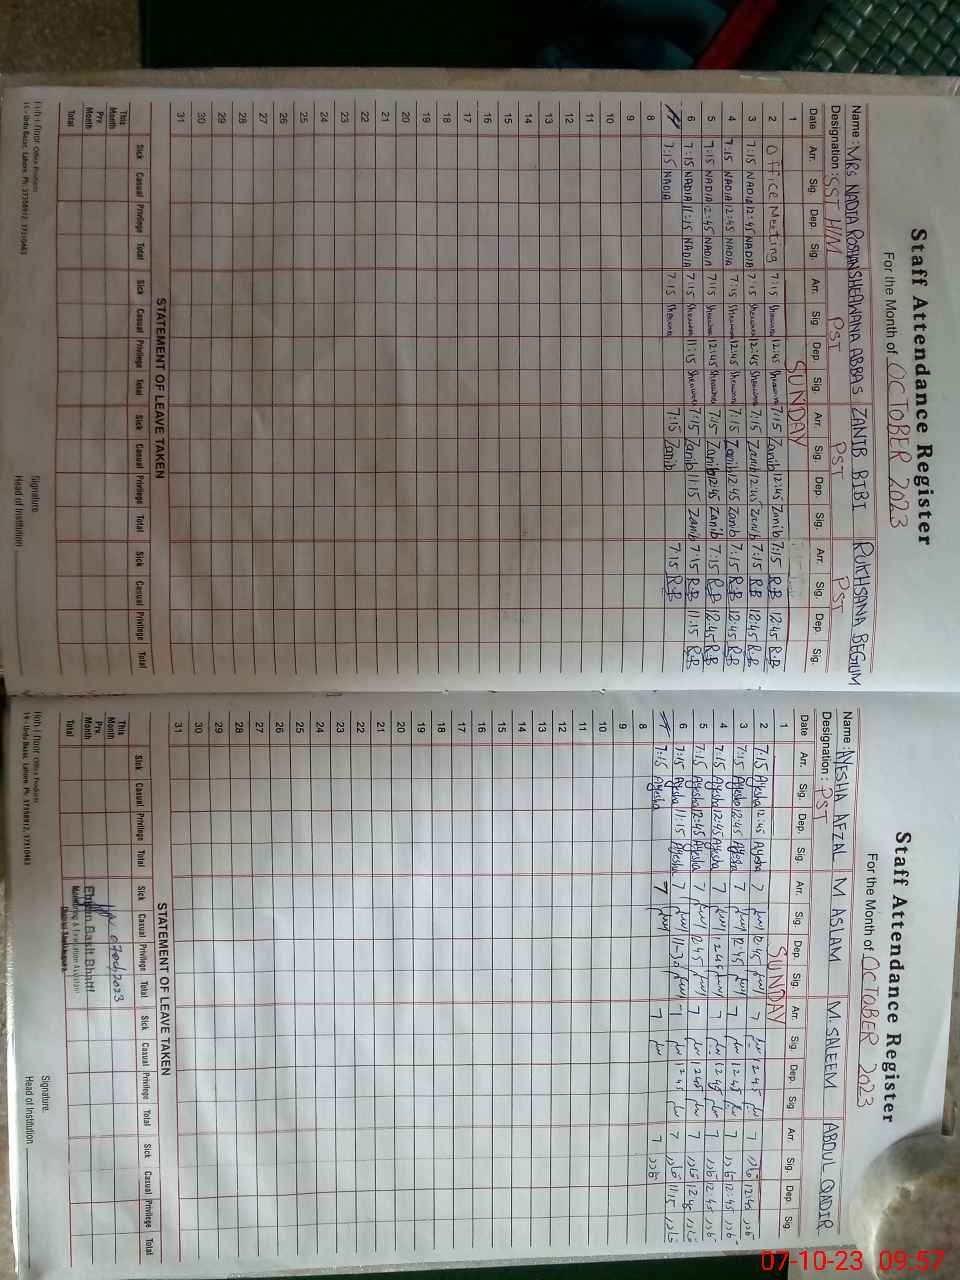 Staff Attendance Register
For the Month of OCTOBER 2023
Name : MRS NADIA ROSHAN SHEAWANA ABBAS ZANIB BIBI RUKHSANA BEGUM
Designation : SST H/M PST PST PST
Date Arr. Sig. Dep. Sig. Arr. Sig. Dep. Sig. Arr. Sig. Dep. Sig. Arr. Sig. Dep. Sig.
1 SUNDAY
2 Office Meeting 7:15 12:45 7:15 Zanib 12:45 Zanib 7:15 R.B 12:45 R.B
3 7:15 NADIA 12:45 NADIA 7:15 12:45 7:15 Zanib 12:45 Zanib 7:15 R.B 12:45 R.B
4 7:15 NADIA 12:45 NADIA 7:15 12:45 7:15 Zanib 12:45 Zanib 7:15 R.B 12:45 R.B
5 7:15 NADIA 12:45 NADIA 7:15 12:45 7:15 Zanib 12:45 Zanib 7:15 R.B 12:45 R.B
6 7:15 NADIA 11:15 NADIA 7:15 11:15 7:15 Zanib 11:15 Zanib 7:15 R.B 11:15 R.B
7:15 NADIA 7:15 7:15 Zanib 7:15 R.B
8
9
10
11
12
13
14
15
16
17
18
19
20
21
22
23
24
25
26
27
28
29
30
31
STATEMENT OF LEAVE TAKEN
Sick Casual Privilege Total Sick Casual Privilege Total Sick Casual Privilege Total Sick Casual Privilege Total
This Month
Prv. Month
Total
Signature.
Head of Institution
14 - Urdu Bazar, Lahore. Ph: 37358912, 37310463
Staff Attendance Register
For the Month of OCTOBER 2023
Name : AYESHA AFZAL M ASLAM M. SALEEM ABDUL QADIR
Designation : PST
Date Arr. Sig. Dep. Sig. Arr. Sig. Dep. Sig. Arr. Sig. Dep. Sig. Arr. Sig. Dep. Sig.
1 SUNDAY
2 7:15 Ayesha 12:45 Ayesha 7 12:45 7 12:45 7 12:45
3 7:15 Ayesha 12:45 Ayesha 7 12:45 7 12:45 7 12:45
4 7:15 Ayesha 12:45 Ayesha 7 12:45 7 12:45 7 12:45
5 7:15 Ayesha 12:45 Ayesha 7 12:45 7 12:45 7 12:45
6 7:15 Ayesha 11:15 Ayesha 7 11-30 7 12:45 7 11:15
7:15 Ayesha 7 7 7
8
9
10
11
12
13
14
15
16
17
18
19
20
21
22
23
24
25
26
27
28
29
30
31
STATEMENT OF LEAVE TAKEN
Sick Casual Privilege Total Sick Casual Privilege Total Sick Casual Privilege Total Sick Casual Privilege Total
This Month
Prv. Month
Total
Basit Bhatti
Monitoring & Evaluation Assistant
District Sheikhupura
Signature.
Head of Institution
14 - Urdu Bazar, Lahore. Ph: 37358912, 37310463
07-10-23 09:57